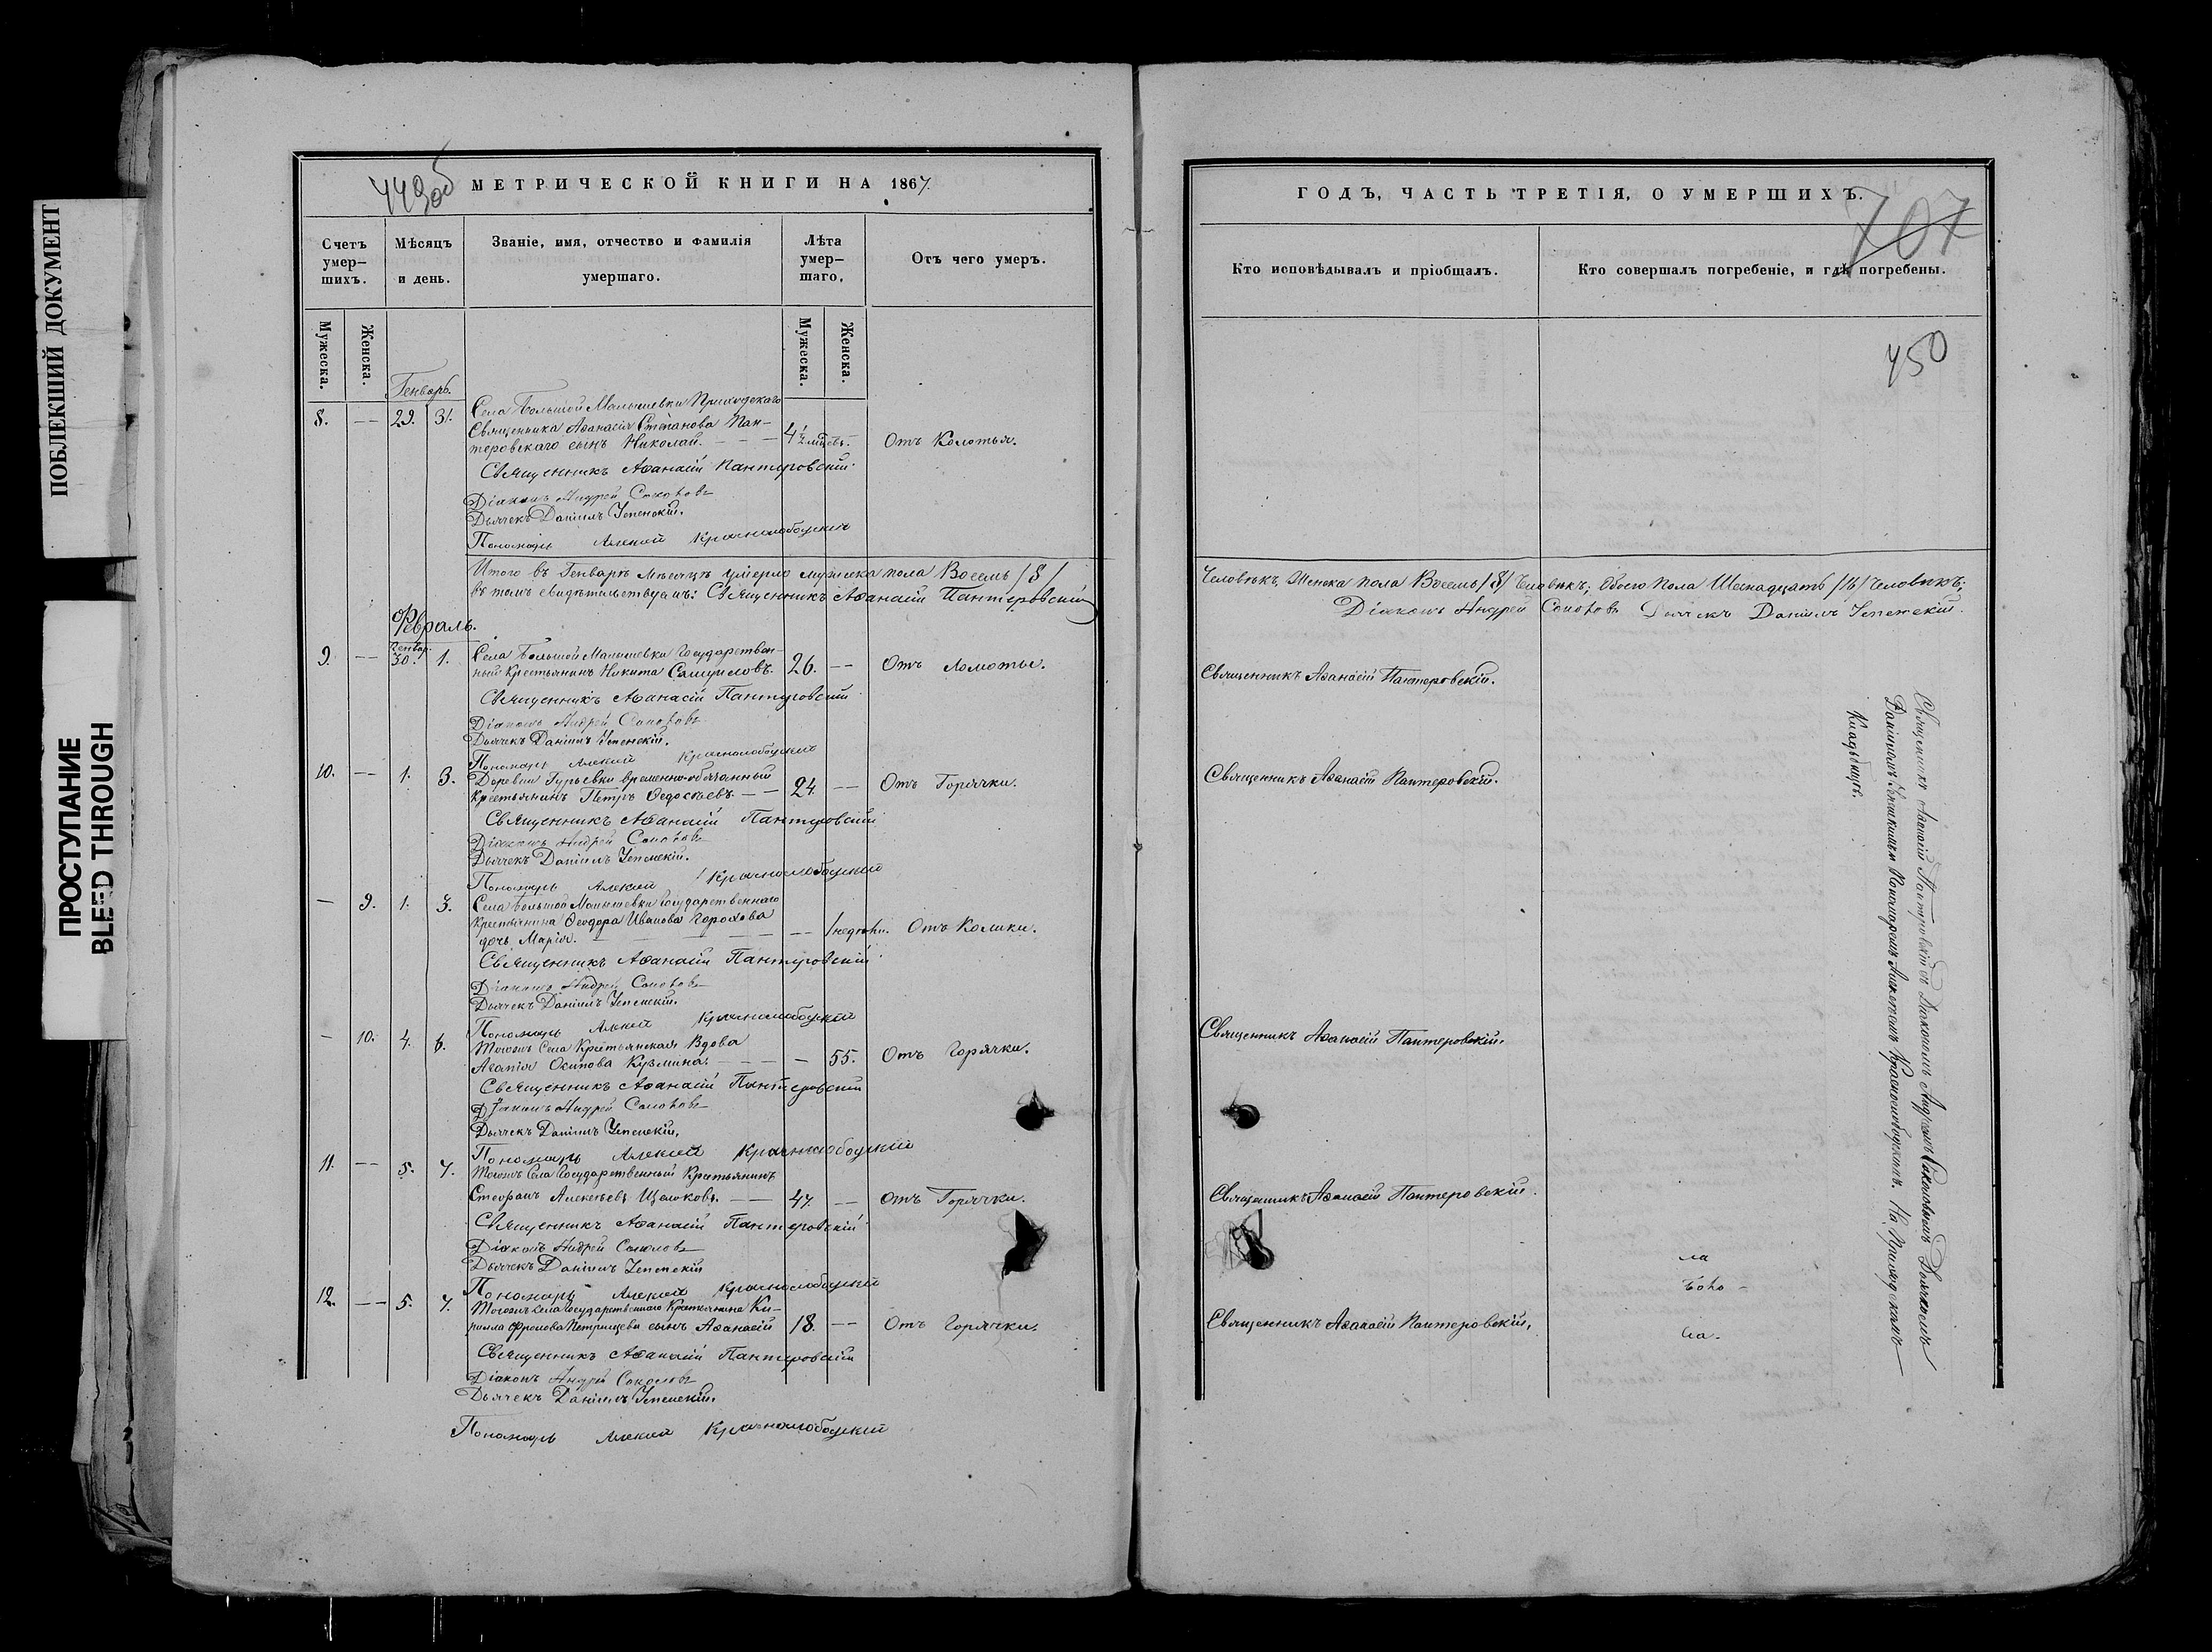 ПОБЛЕКШИЙ ДОКУМЕНТ
ПРОСТУПАНИЕ
BLEED THROUGH
449об
МЕТРИЧЕСКОЙ КНИГИ НА 1867.
Счетъ умер–шихъ.
Мѣсяцъ и день.
Званіе, имя, отчество и фамилія умершаго.
Лѣта умер–шаго.
Отъ чего умеръ.
Мужеска.
Женска.
Мужеска.
Женска.
Генварь.
8. — 29. 31. Села Большой Малышевки Приходскаго
Священника Аѳанасія Стефанова Пан-
теровскаго сынъ Николай. — — 4½ мѣсев. Отъ Колотья.
Священникъ Аѳанасій Пантеровскій
Діаконъ Андрей Соколовъ
Дьячекъ Даніилъ Успенскій.
Пономарь Алексій Краснослободскій
Итого въ Генварѣ мѣсяцѣ умерло мужеска пола Восемь /8/
въ томъ свидѣтельствуемъ: Священникъ Аѳанасій Пантеровскій
Февраль.
Генвар.
9. — 30. 1. Села Большой Малышевки Государствен-
ный Крестьянинъ Никита Самуиловъ. 26. — Отъ Ломоты.
Священникъ Аѳанасій Пантеровскій
Діаконъ Андрей Соколовъ
Дьячекъ Даніилъ Успенскій.
Пономарь Алексій Краснослободскій
10. — 1. 3. Деревни Гурьевки временно-обязанный
Крестьянинъ Петръ Ѳедосѣевъ — — 24. — Отъ Горячки.
Священникъ Аѳанасій Пантеровскій
Діаконъ Андрей Соколовъ
Дьячекъ Даніилъ Успенскій.
Пономарь Алексій Краснослободскій
— 9. 1. 3. Села Большой Малышевки Государственнаго
Крестьянина Ѳеодора Иванова Горохова
дочь Марія. — — 1 недѣли. Отъ Колики.
Священникъ Аѳанасій Пантеровскій
Діаконъ Андрей Соколовъ
Дьячекъ Даніилъ Успенскій.
Пономарь Алексій Краснослободскій
— 10. 4. 6. Тогожъ Села Крестьянская Вдова
Агапія Осипова Кузмина. — — — 55. Отъ Горячки.
Священникъ Аѳанасій Пантеровскій
Діаконъ Андрей Соколовъ
Дьячекъ Даніилъ Успенскій.
Пономарь Алексій Краснослободскій
11. — 5. 7. Тогожъ Села Государственный Крестьянинъ
Стефанъ Алексѣевъ Щелоковъ. — — 47. — Отъ Горячки.
Священникъ Аѳанасій Пантеровскій
Діаконъ Андрей Соколовъ
Дьячекъ Даніилъ Успенскій
Пономарь Алексій Краснослободскій
12. — 5. 7. Тогожъ Села Государственнаго Крестьянина Ки-
рилла Фролова Петрищева сынъ Аѳанасій 18. — Отъ Горячки.
Священникъ Аѳанасій Пантеровскій
Діаконъ Андрей Соколовъ
Дьячекъ Даніилъ Успенскій.
Пономарь Алексій Краснослободскій
ГОДЪ, ЧАСТЬ ТРЕТІЯ, О УМЕРШИХЪ.
707
Кто исповѣдывалъ и пріобщалъ.
Кто совершалъ погребеніе, и гдѣ погребены.
450
Человѣкъ, Женска пола Восемь /8/ Человѣкъ; Обоего Пола Шеснадцать /16/ Человѣкъ;
Діаконъ Андрей Соколовъ Дьячекъ Даніилъ Успенскій.
Священникъ Аѳанасій Пантеровскій.
Священникъ Аѳанасій Пантеровскій.
Священникъ Аѳанасій Пантеровскій.
Священникъ Аѳанасій Пантеровскій.
Священникъ Аѳанасій Пантеровскій.
Священникъ Аѳанасій Пантеровскій съ Діакономъ Андреемъ Соколовымъ Дьячкомъ
Даніиломъ Успенскимъ Пономаремъ Алексѣемъ Краснослободскимъ. На Приходскомъ
Кладбищѣ.